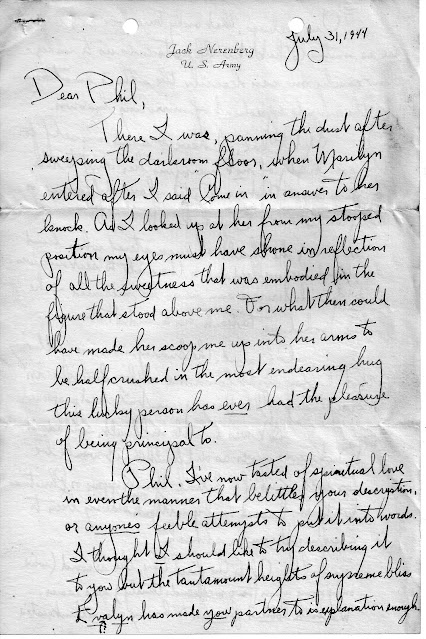 July 31, 1944
Jack Nerenberg
U. S. Army
Dear Phil,
There I was, panning the dust after
sweeping the darkroom floor, when Marilyn
entered after I said "Come in" in answer to her
knock. As I looked up at her from my stooped
position my eyes must have shone in reflection
of all the sweetness that was embodied in the
figure that stood above me. For what then could
have made her scoop me up into her arms to
be half crushed in the most endearing hug
this lucky person has ever had the pleasure
of being principal to.
Phil, I've now tasted of spiritual love
in even the manner that belittles your description,
or anyones feeble attempts to put it into words.
I thought I should like to try describing it
to you but the tantamount heights of supreme bliss
Evalyn has made you partner to is explanation enough.